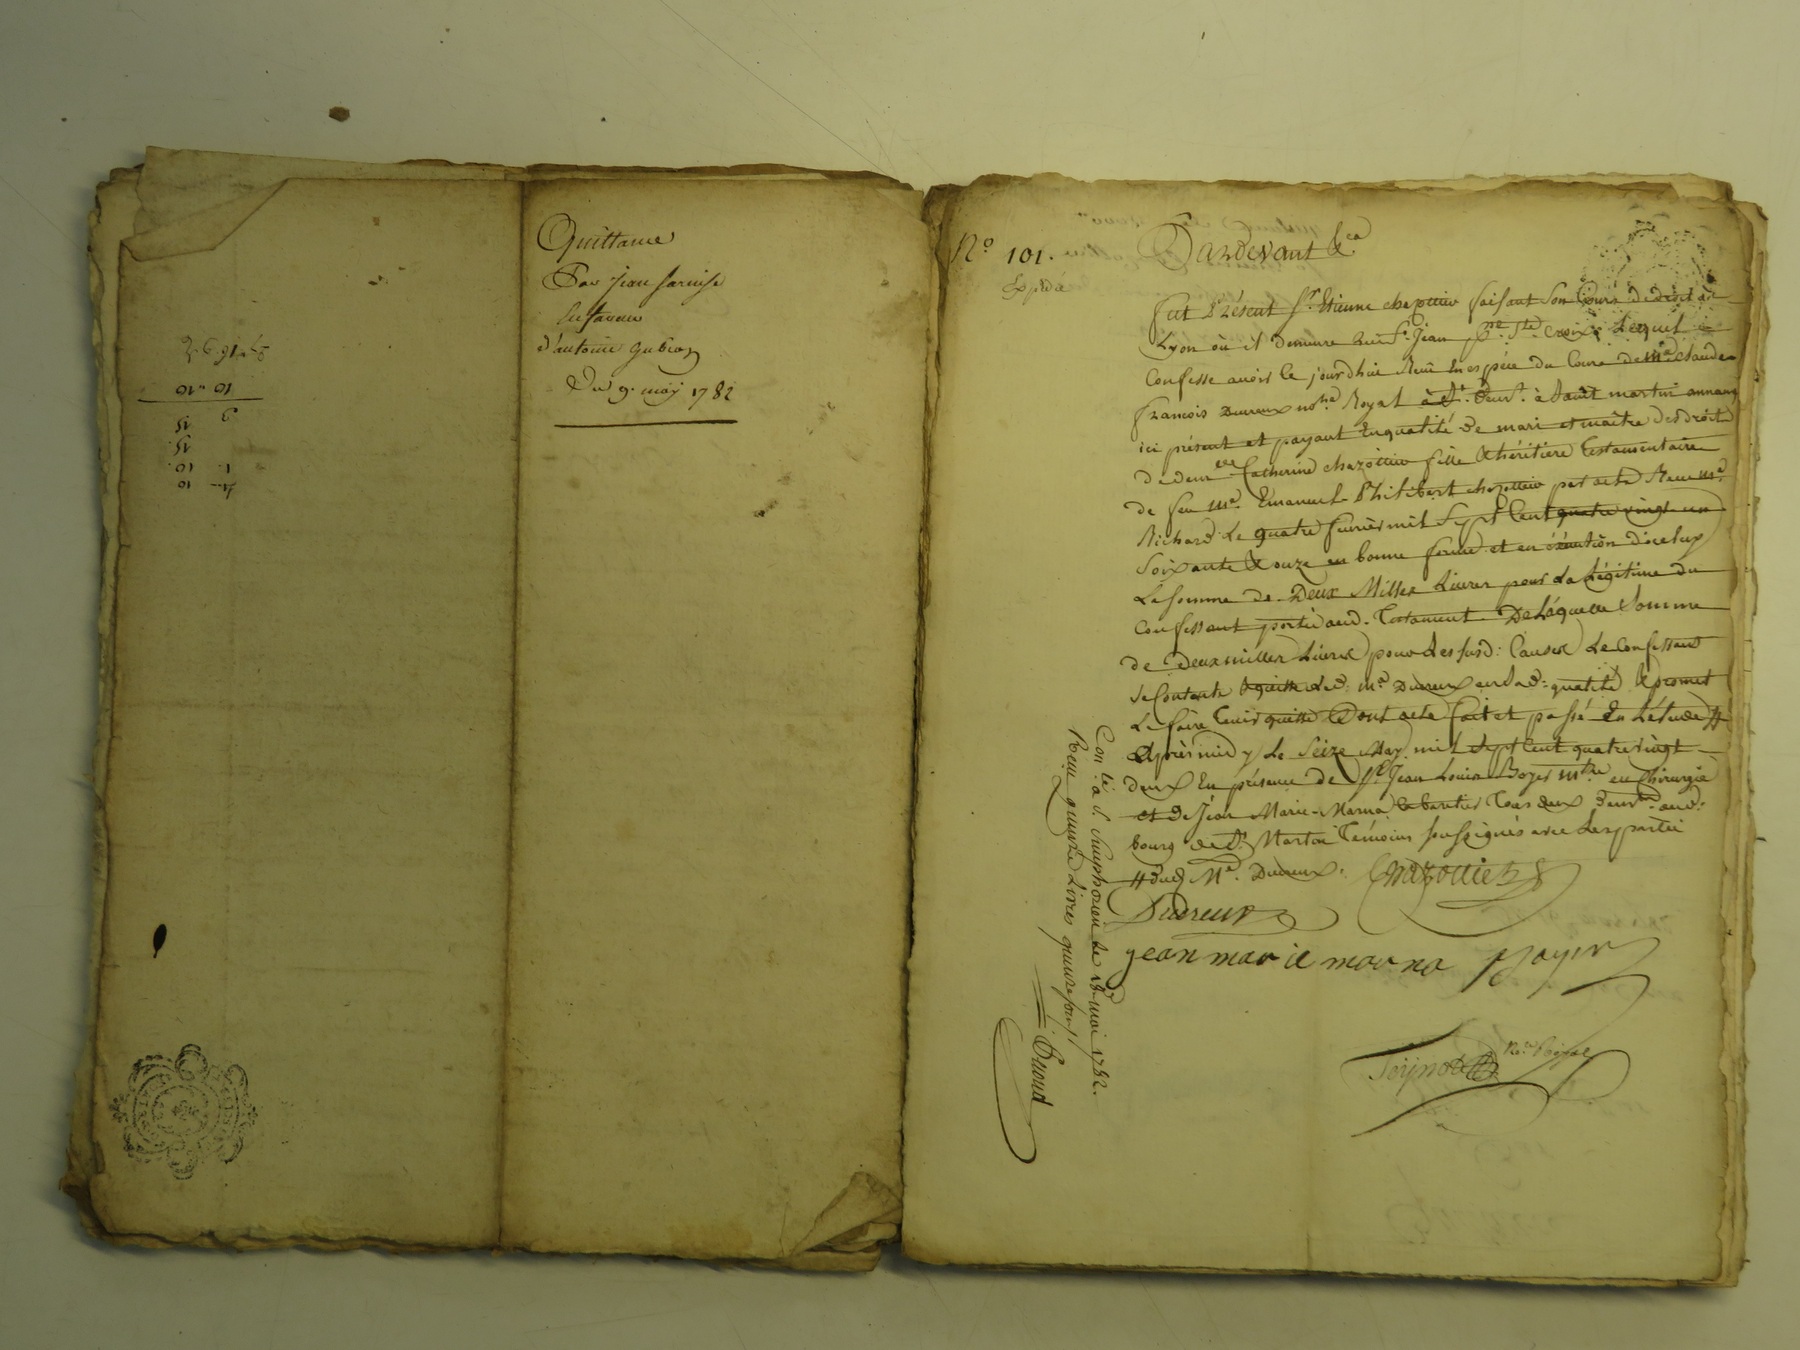 Quittance
Par Jean
en faveur
d'antoine Gubian
Du 9. maÿ 1782
N.º 101.
Expédié
Pardevant &ca
fut Présent Sr. Etienne chazottier faisant Son Cours de droit à
Lyon où il demeure rue St. Jean psse. Ste. Croix, Lequel
Confesse avoir ce jourdhui Reçu en espèce du Cours de me. Claude
françois Dureux notre. Royal demeurt. à Saint martin annaux
ici présent et payant En qualité de mari et maître des droits
de demlle Catherine chazottier fille & héritière testamentaire
de feu me. Emanuel Philibert chazottier par acte Reçu me.
Richard Le quatre fevrier mil Sept Cent quatre vingt un
Soixante & onze en bonne forme et en exécution d'iceluy
La Somme de Deux Milles Livres pour La Légitime du
Confessant portée aud. Testament De Laquelle Somme
de deux milles Livres pour Les susd: Causes Le Confessant
se Contente & quitte Led: me. Dureux en sad: qualité & promet
Le faire tenir quitte Dont acte fait et passé En Létude #
Après midy Le Seize May mil Sept Cent quatre vingt
deux En présence de Sr. Jean Louis Boyer mtre en Chirurgie
et de Jean Marie Marna Tous deux demts. aud:
bourg de St. Martin Témoins soussignés avec Les parties
# dud Me. Dureux. Chazottier
Dureux
jean marie marna Boyer
Nre. Royal
Conlé. à S. Simphorien Le 18. mai 1782.
Reçu quinze Livres quinze sous